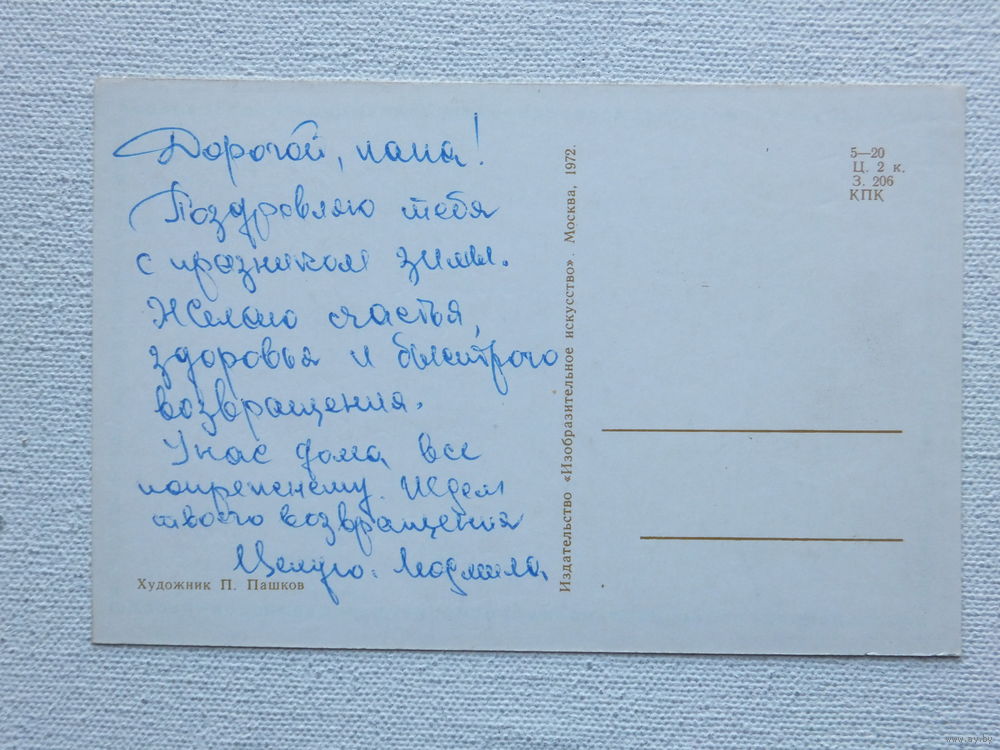 Дорогой, папа!
Поздровляю тебя
с празником зимы.
Желаю счастья,
здоровья и быстрого
возвращения.
У нас дома все
попрежнему. Ждем
твоего возвращения
Целую: Людмила
Художник П. Пашков
Издательство «Изобразительное искусство». Москва, 1972.
5—20
Ц. 2 к.
З. 206
КПК
www.ay.by